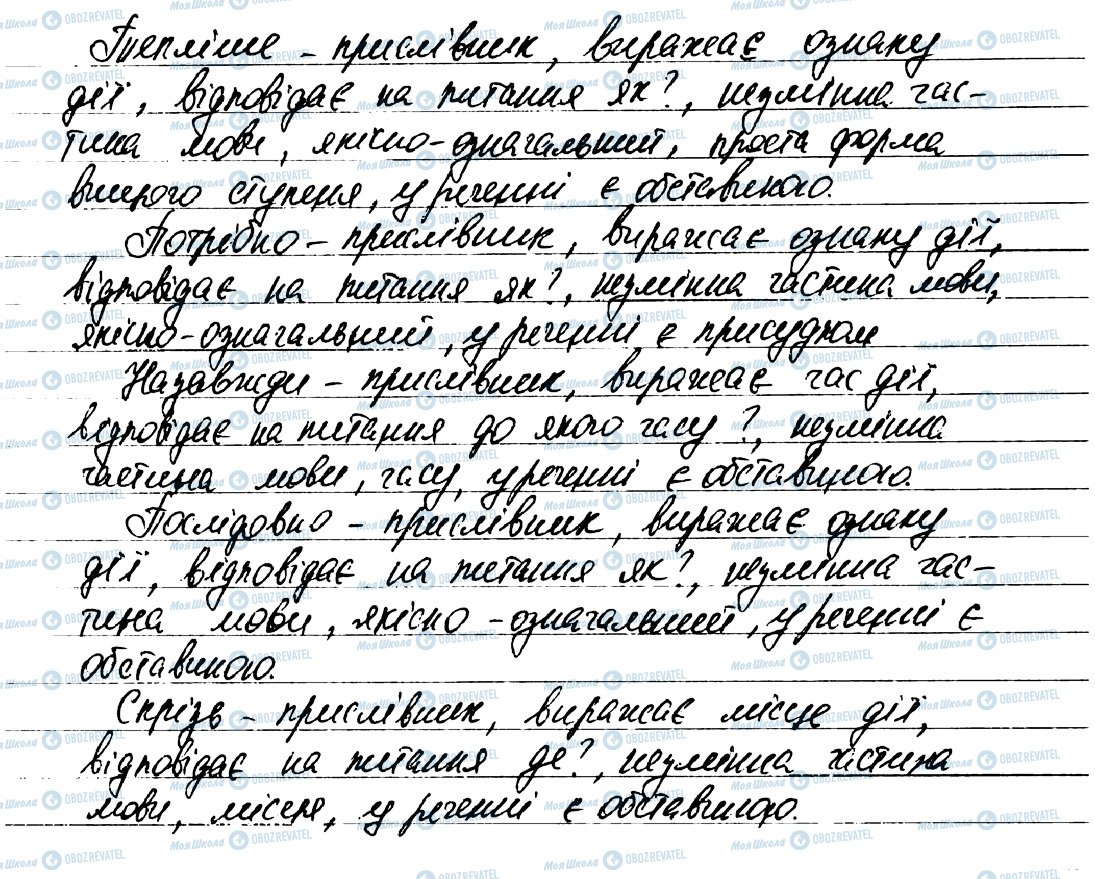 Тепліше – прислівник, виражає ознаку
дії, відповідає на питання як?, незмінна час-
тина мови, якісно-означальний, проста форма
вищого ступеня, у реченні є обставиною.
Потрібно – прислівник, виражає ознаку дії,
відповідає на питання як?, незмінна частина мови,
якісно-означальний, у реченні є присудком
Назавжди – прислівник, виражає час дії,
відповідає на питання до якого часу?, незмінна
частина мови, часу, у реченні є обставиною.
Послідовно – прислівник, виражає ознаку
дії, відповідає на питання як?, незмінна час-
тина мови, якісно-означальний, у реченні є
обставиною.
Скрізь – прислівник, виражає місце дії,
відповідає на питання де?, незмінна частина
мови, місця, у реченні є обставиною.